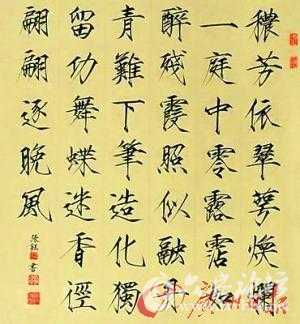 穠芳依翠萼煥爛
一庭中零露霑如
醉殘霞照似融丹
青難下筆造化獨
留功舞蝶迷香徑
翩翩逐晚風